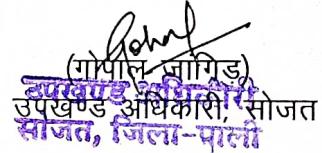 (गोपाल जांगिड़)
उपखण्ड अधिकारी
उपखण्ड अधिकारी, सोजत
सोजत, जिला-पाली